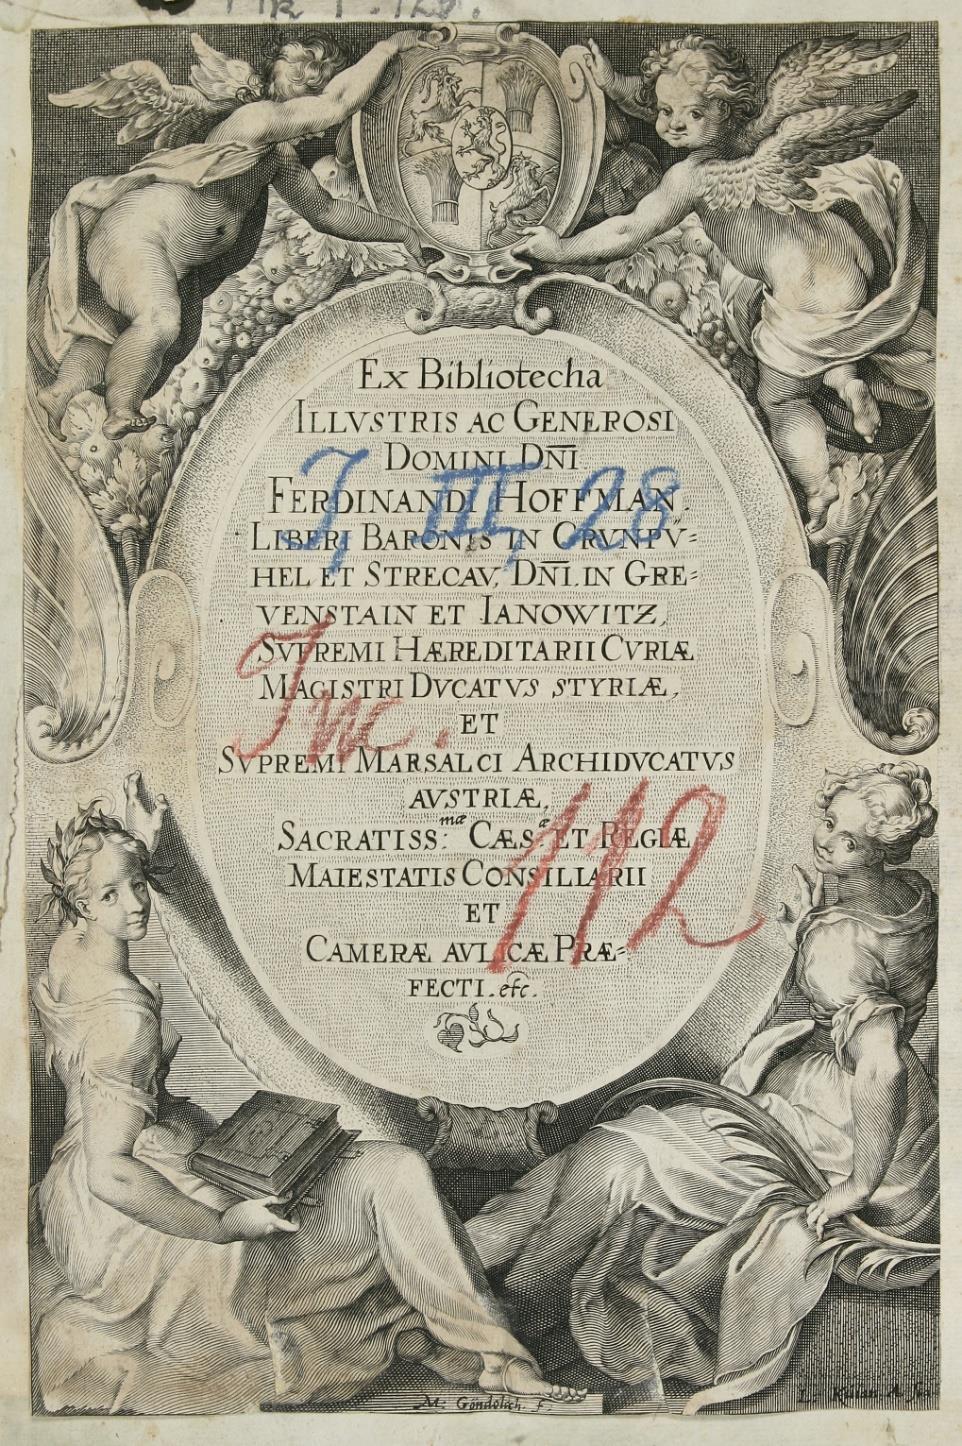 Ex Bibliotecha
ILLVSTRIS AC GENEROSI
DOMINI DN̄I
FERDINANDI HOFFMAN.
LIBERI BARONIS IN GRVNPV̋=
HEL ET STRECAV, DN̄I. IN GRE=
VENSTAIN ET IANOWITZ,
SVPREMI HÆREDITARII CVRIÆ
MAGISTRI DVCATVS STYRIÆ,
ET
SVPREMI MARSALCI ARCHIDVCATVS
AVSTRIÆ,
SACRATISS:mæ CÆS:æ ET REGIÆ
MAIESTATIS CONSILIARII
ET
CAMERÆ AVLICÆ PRÆ=
FECTI. etc.
I, III, 28
Inc. 112
M: Gondolach. f.
L. Kilian A.